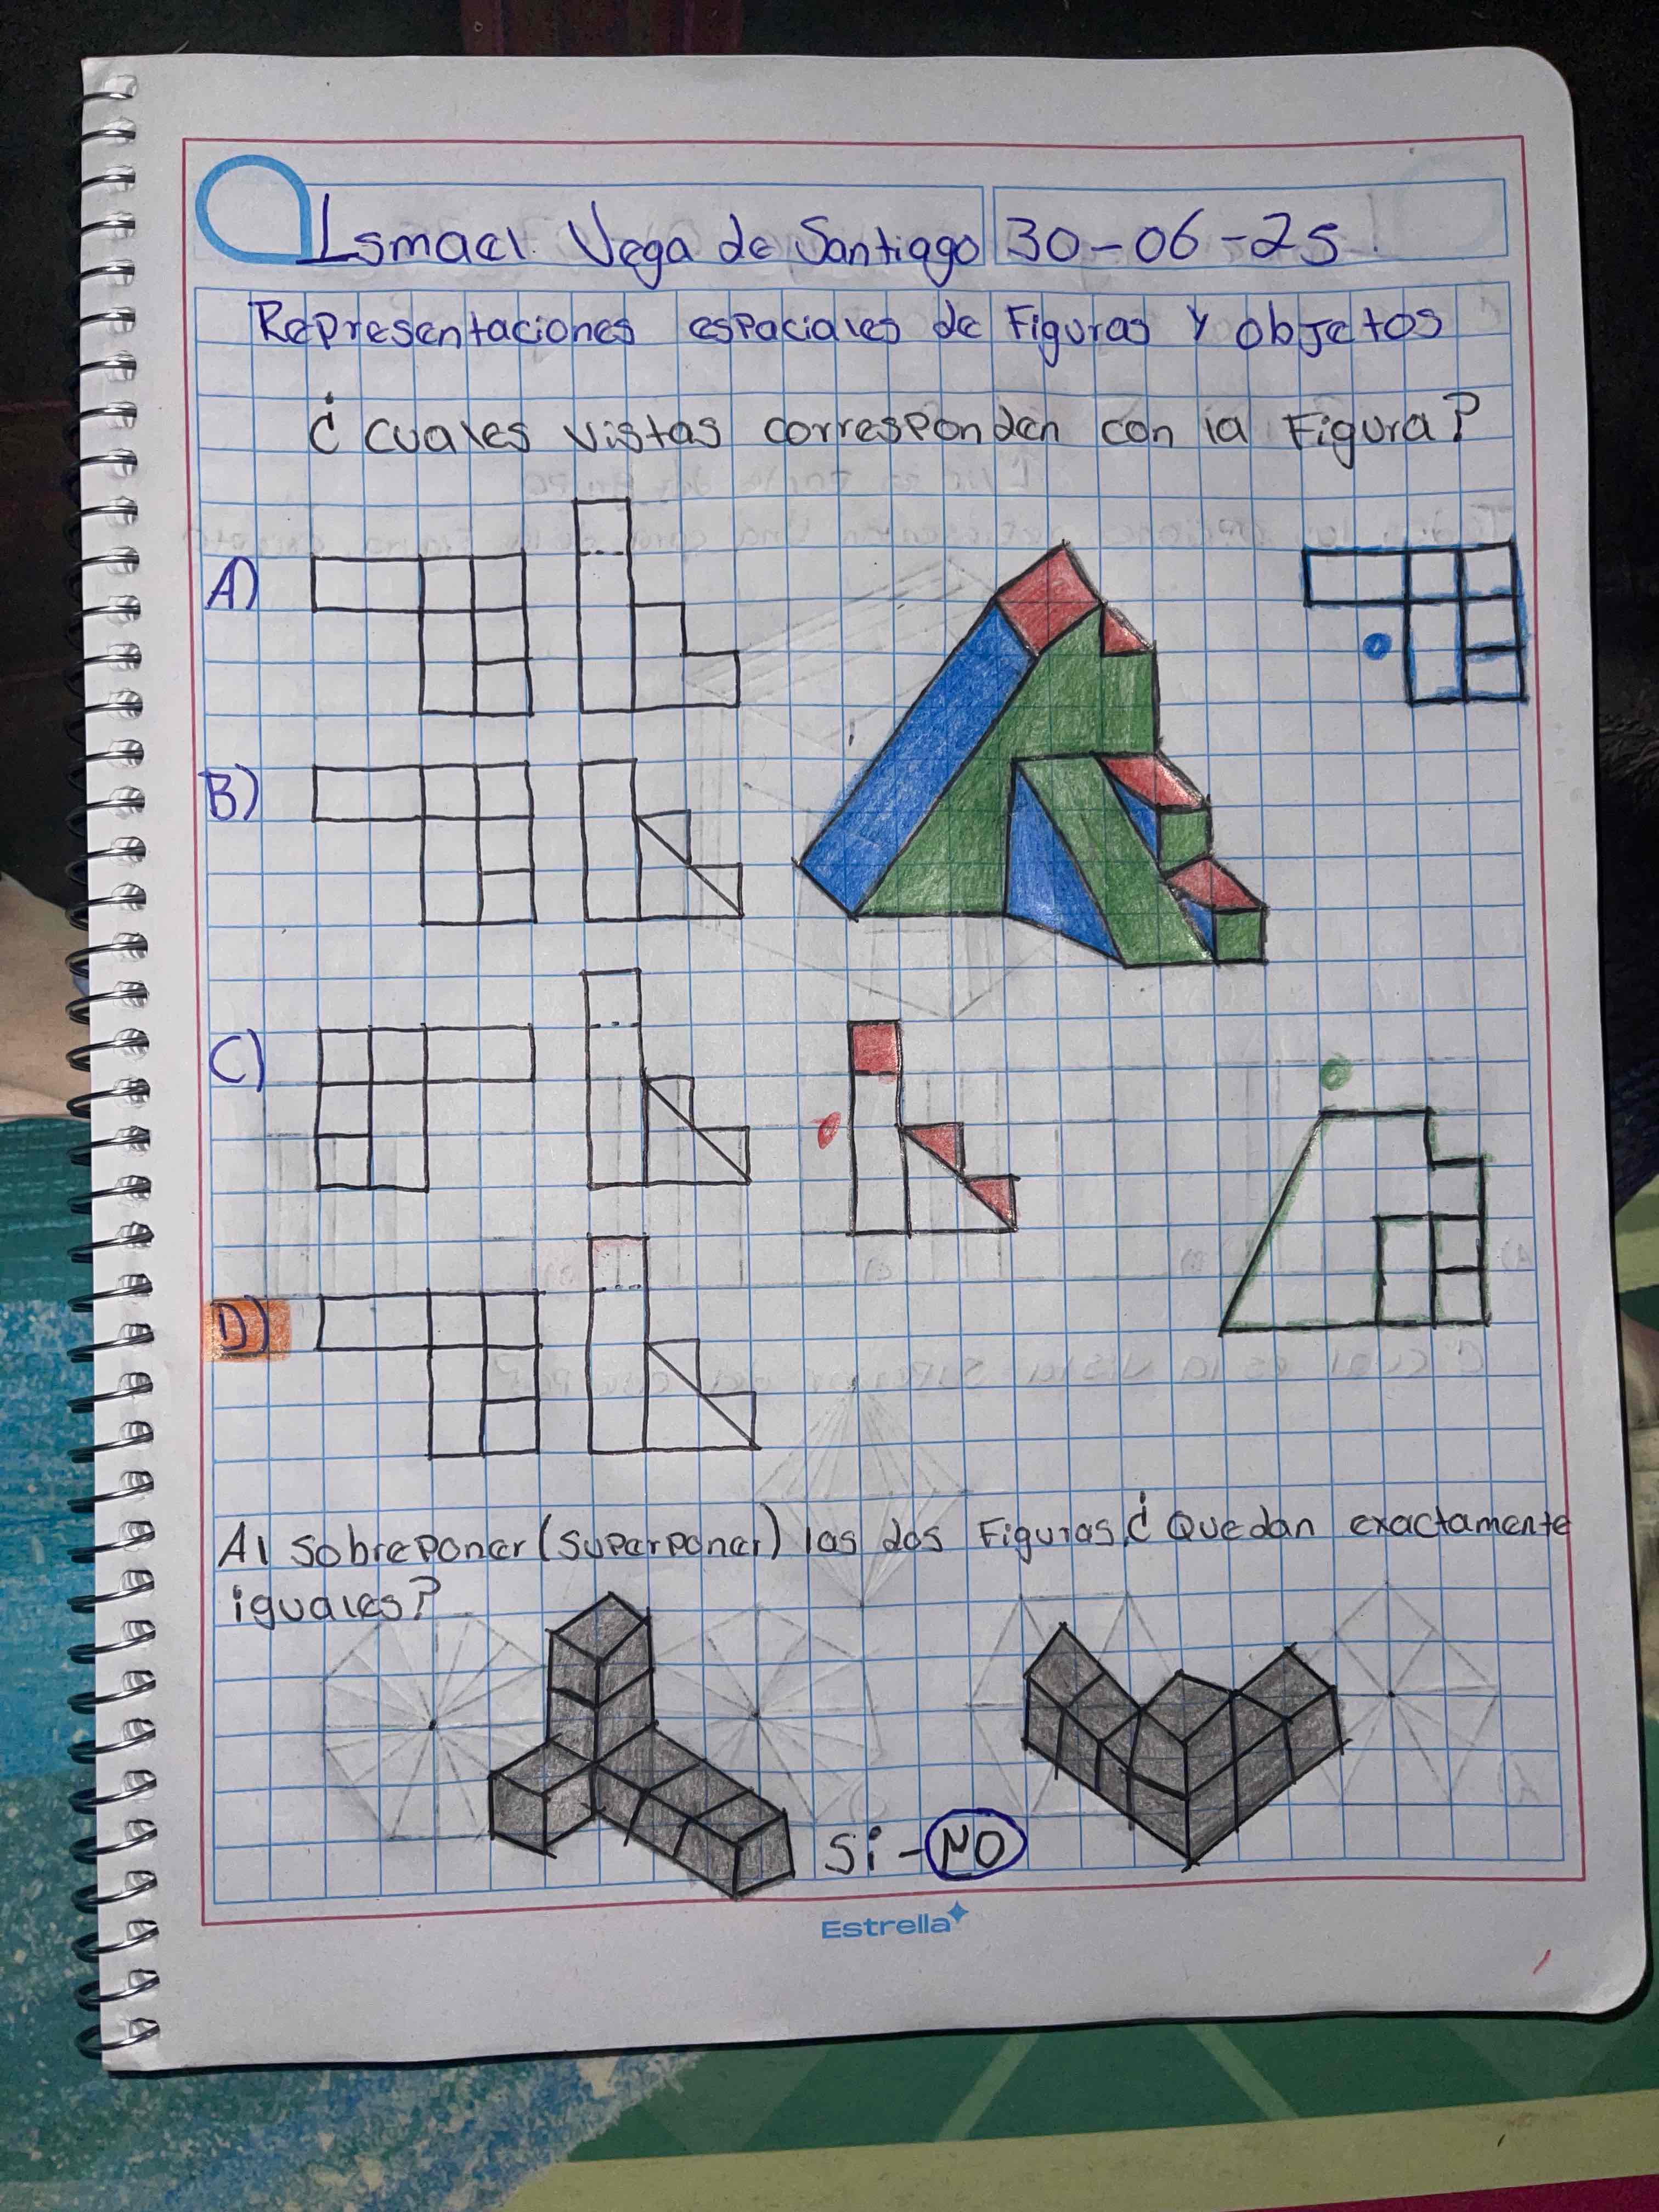 Ismael Vega de Santiago 30-06-25
Representaciones espaciales de Figuras y objetos
¿cuales vistas corresponden con la Figura?
A)
B)
C)
D)
Al sobreponer (superponer) las dos Figuras,¿Quedan exactamente
iguales?
Si-NO
Estrella